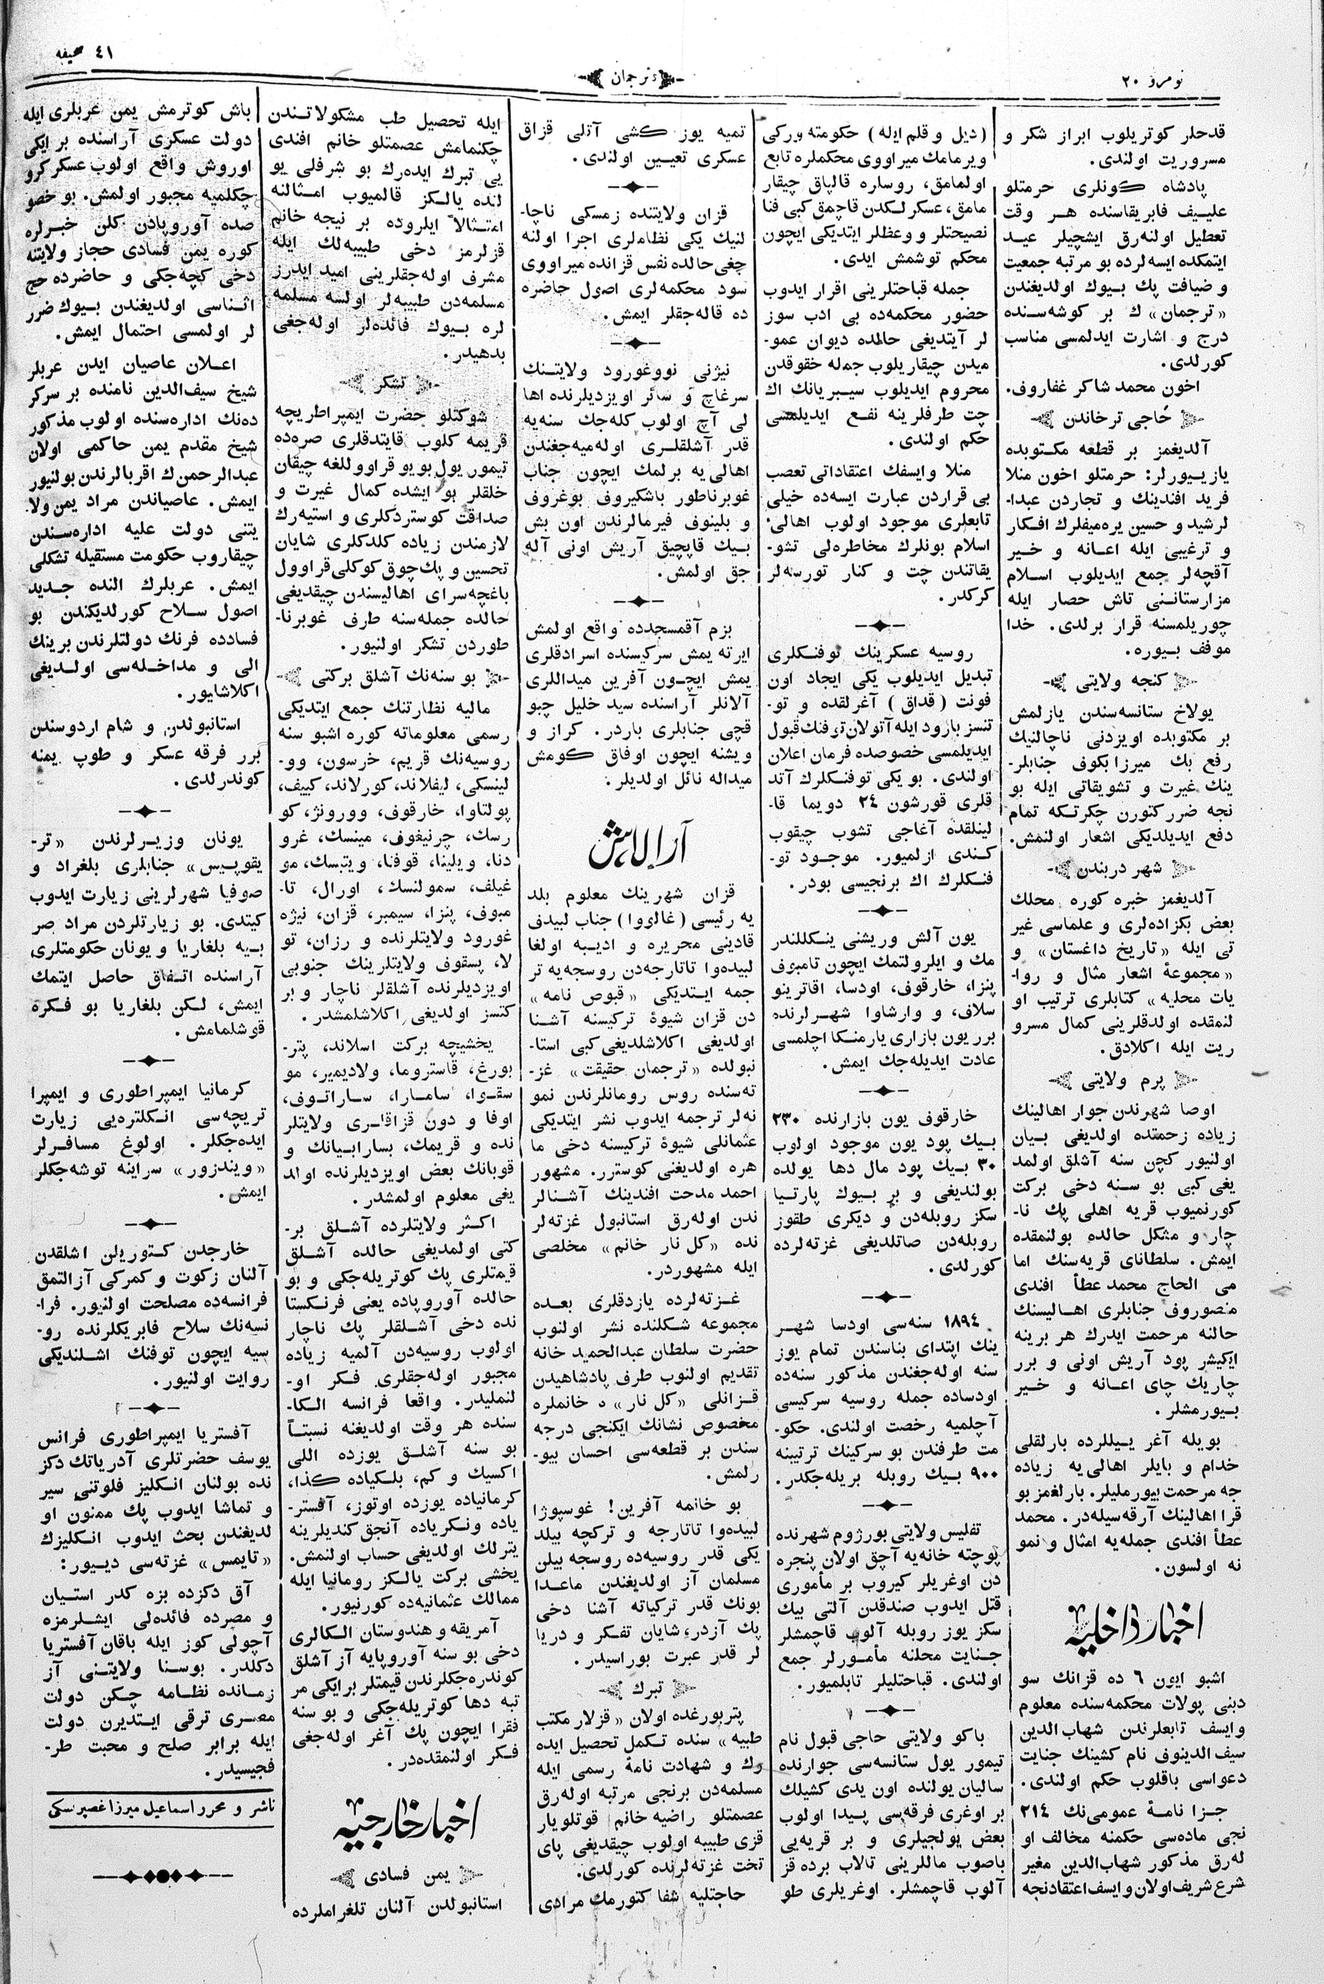 نومرو ٢٠
ترجمان
٤١ صحيفه
قدحلر كوتريلوب ابراز شكر و
مسروريت اولندى.
پادشاه كونلرى حرمتلو
علييف فابريقاسنده هر وقت
تعطيل اولنه‌رق ايشچيلر عيد
ايتمكده ايسه‌لرده بو مرتبه جمعيت
و ضيافت پك بيوك اولديغندن
«ترجمان»ك بر كوشه‌سنده
درج و اشارت ايدلمسى مناسب
كورلدى.
اخون محمد شاكر غفاروف.
حاجى ترخاندن
آلديغمز بر قطعه مكتوبده
يازيورلر: حرمتلو اخون منلا
فريد افندينك و تجاردن عبدا-
لرشيد و حسين يره‌ميفلرك افكار
و ترغيبى ايله اعانه و خير
آقچه‌لر جمع ايديلوب اسلام
مزارستانى تاش حصار ايله
چوريلمسنه قرار برلدى. خدا
موفف بيوره.
كنجه ولايتى
يولاخ ستانسه‌سندن يازلمش
بر مكتوبده اويزدنى ناچالنيك
رفع بك ميرزا بكوف جنابلر-
ينك غيرت و تشويقاتى ايله بو
نجه ضرر كتورن چكرتكه تمام
دفع ايديلديكى اشعار اولنمش.
شهر دربندن
آلديغمز خبره كوره محلك
بعض بكزاده‌لرى و علماسى غير
تى ايله «تاريخ داغستان» و
«مجموعهٔ اشعار مثال و روا-
يات محليه» كتابلرى ترتيب او
لنمقده اولدقلرينى كمال مسرو
ريت ايله اكلادق.
پرم ولايتى
اوصا شهرندن جوار اهالينك
زياده زحمتده اولديغى بيان
اولنيور كچن سنه آشلق اولمد
يغى كبى بو سنه دخى بركت
كورنميوب قريه اهلى پك نا-
چار و مشكل حالده بولنمقده
ايمش. سلطاناى قريه‌سنك اما
مى الحاج محمد عطأ افندى
منصوروف جنابلرى اهاليسنك
حالنه مرحمت ايدرك هر برينه
ايكيشر پود آريش اونى و برر
چاريك چاى اعانه و خير
بيورمشلر.
بويله آغر ييللرده بارلقلى
خدام و بايلر اهالى‌يه زياده
جه مرحمت بيورمليلر. بارلغمز بو
قرا اهالينك آرقه‌سيله‌در. محمد
عطأ افندى جمله‌يه امثال و نمو
نه اولسون.
اخبار داخليه
اشبو ايون ٦ ده قزانك سو
دبنى پولات محكمه‌سنده معلوم
وايسف تابعلرندن شهاب‌الدين
سيف الدينوف نام كشينك جنايت
دعواسى باقلوب حكم اولندى.
جزا نامهٔ عمومى‌نك ٢١٤
نجى ماده‌سى حكمنه مخالف او
له‌رق مذكور شهاب‌الدين مغير
شرع شريف اولان وايسف اعتقادنجه
(ديل و قلم ايله) حكومته وركى
ويرمامك ميراووى محكملره تابع
اولمامق، روساره قالپاق چيقار
مامق، عسكرلكدن قاچمق كبى فنا
نصيحتلر و وعظلر ايتديكى ايچون
محكم توشمش ايدى.
جمله قباحتلرينى اقرار ايدوب
حضور محكمه‌ده بى ادب سوز
لر آيتديغى حالده ديوان عمو-
ميدن چيقاريلوب جمله حقوقدن
محروم ايديلوب سيبريانك اك
چت طرفلرينه نفع ايديلمسى
حكم اولندى.
منلا وايسفك اعتقاداتى تعصب
بى قراردن عبارت ايسه‌ده خيلى
تابعلرى موجود اولوب اهالى
اسلام بونلرك مخاطره‌لى تشو-
يقاتندن چت و كنار تورسه‌لر
كركدر.
روسيه عسكرينك توفنكلرى
تبديل ايديلوب يكى ايجاد اون
فونت (قداق) آغرلقده و تو-
تنسز بارود ايله آتولان توفنك قبول
ايديلمسى خصوصده فرمان اعلان
اولندى. بو يكى توفنكلرك آتد
قلرى قورشون ٢٤ دويما قا-
لينلقده آغاجى تشوب چيقوب
كندى ازلميور. موجود تو-
فنكلرك اك برنجيسى بودر.
يون آلش وريشنى ينكللندر
مك و ايلرولتمك ايچون تامبوف
پنزا، خارقوف، اودسا، اقاترينو
سلاف، و وارشاوا شهرلرنده
برر يون بازارى يارمنكا اچلمسى
عادت ايديله‌جك ايمش.
خارقوف يون بازارنده ٢٣٠
بيك پود يون موجود اولوب
٣٠ بيك پود مال دها يولده
بولنديغى و بر بيوك پارتيا
سكز روبله‌دن و ديكرى طقوز
روبله‌دن صاتلديغى غزته‌لرده
كورلدى.
١٨٩٤ سنه‌سى اودسا شهر
ينك ابتداى بناسندن تمام يوز
سنه اوله‌جغندن مذكور سنه‌ده
اودساده جمله روسيه سركيسى
آچلميه رخصت اولندى. حكو-
مت طرفندن بو سركينك ترتيبنه
٩٠٠ بيك روبله بريله‌جكدر.
تفليس ولايتى بورژوم شهرنده
پوچته خانه‌يه آچق اولان پنجره
دن اوغريلر كيروب بر مأمورى
قتل ايدوب صندقدن آلتى بيك
سكز يوز روبله آلوب قاچمشلر
جنايت محلنه مأمورلر جمع
اولندى. قباحتليلر تابلميور.
باكو ولايتى حاجى قبول نام
تيمور يول ستانسه‌سى جوارنده
ساليان يولنده اون يدى كشيلك
بر اوغرى فرقه‌سى پيدا اولوب
بعض يولجيلرى و بر قريه‌يى
باصوب ماللرينى تالاب برده قز
آلوب قاچمشلر. اوغريلرى طو
تميه يوز كشى آتلى قزاق
عسكرى تعيين اولندى.
قزان ولايتنده زمسكى ناچا-
لنيك يكى نظاملرى اجرا اولنه
چغى حالده نفس قزانده ميراووى
سود محكمه‌لرى اصول حاضره
ده قاله‌جقلر ايمش.
نيژنى نووغورود ولايتنك
سرغاچ و سائر اويزديلرنده اها
لى آچ اولوب كله‌جك سنه‌يه
قدر آشلقلرى اوله‌ميه‌جغندن
اهالى‌يه برلمك ايچون جناب
غوبرناطور باشكيروف بوغروف
و بلينوف فيرمالرندن اون بش
بيك قاپچيق آريش اونى آله
جق اولمش.
بزم آقمسجدده واقع اولمش
ايرته يمش سركيسنده اسرادقلرى
يمش ايچون آفرين ميداللرى
آلانلر آراسنده سيد خليل چبو
قچى جنابلرى باردر. كراز و
ويشنه ايچون اوفاق كومش
ميداله نائل اولديلر.
آرالاش
قزان شهرينك معلوم بلد
يه رئيسى (غالووا) جناب لبيدف
قادينى محريره و اديبه اولغا
لبيده‌وا تاتارجه‌دن روسجه‌يه تر
جمه ايتديكى «قبوص نامه»
دن قزان شيوهٔ تركيسنه آشنا
اولديغى اكلاشلديغى كبى استا-
نبولده «ترجمان حقيقت» غز-
ته‌سنده روس رومانلرندن نمو
نه‌لر ترجمه ايدوب نشر ايتديكى
عثمانلى شيوهٔ تركيسنه دخى ما
هره اولديغنى كوسترر. مشهور
احمد مدحت افندينك آشنالر
ندن اوله‌رق استانبول غزته‌لر
نده «كلنار خانم» مخلصى
ايله مشهوردر.
غزته‌لرده يازدقلرى بعده
مجموعه شكلنده نشر اولنوب
حضرت سلطان عبدالحميد خانه
تقديم اولنوب طرف پادشاهيدن
قزانلى «كلنار» ه خانملره
مخصوص نشانك ايكنجى درجه
سندن بر قطعه‌سى احسان بيو-
رلمش.
بو خانمه آفرين! غوسپوژا
لبيده‌وا تاتارجه و تركچه بيلد
يكى قدر روسيه‌ده روسجه بيلن
مسلمان آز اولديغندن ماعدا
بونك قدر تركياته آشنا دخى
پك آزدر، شايان تفكر و دريا
لر قدر عبرت بوراسيدر.
تبرك
پتربورغده اولان «قزلار مكتب
طبيه» سنده تكمل تحصيل ايده
رك و شهادت نامهٔ رسمى ايله
مسلمه‌دن برنجى مرتبه اوله‌رق
عصمتلو راضيه خانم قوتلويار
قزى طبيبه اولوب چيقديغى پاى
تخت غزته‌لرنده كورلدى.
حاجتليه شفا كتورمك مرادى
ايله تحصيل طب مشكولاتندن
چكنمامش عصمتلو خانم افندى
يى تبرك ايده‌رك بو شرفلى يو
لنده يالكز قالميوب امثالنه
امتثالاً ايلروده بر نيجه خانم
قزلرمز دخى طبيبه‌لك ايله
مشرف اوله‌جقلرينى اميد ايدرز
مسلمه‌دن طبيبه‌لر اولسه مسلمه
لره بيوك فائده‌لر اوله‌جغى
بدهيدر.
تشكر
شوكتلو حضرت ايمپراطريچه
قريمه كلوب قايتدقلرى صره‌ده
تيمور يول بويو قراووللغه چيقان
خلقلر بو ايشده كمال غيرت و
صداقت كوستردكلرى و استيه‌رك
لازمندن زياده كلدكلرى شايان
تحسين و پك چوق كوكلى قراوول
باغچه‌سراى اهاليسندن چيقديغى
حالده جمله‌سنه طرف غوبرنا-
طوردن تشكر اولنيور.
بو سنه‌نك آشلق بركتى
ماليه نظارتنك جمع ايتديكى
رسمى معلوماته كوره اشبو سنه
روسيه‌نك قريم، خرسون، وو-
لينسكى، ليفلاند، كورلاند، كييف،
پولتاوا، خارقوف، وورونژ، كو
رسك، چرنيغوف، مينسك، غرو
دنا، ويلينا، قوفنا، ويتبسك، مو
غيلف، سمولنسك، اورال، تا-
مبوف، پنزا، سيمبر، قزان، نيژه
غورود ولايتلرنده و رزان، تو
لا، پسقوف ولايتلرينك جنوبى
اويزديلرنده آشلقلر ناچار و بر
كتسز اولديغى اكلاشلمشدر.
يخشيچه بركت اسلاند، پتر-
بورغ، قاستروما، ولاديمير، مو
سقوا، سامارا، ساراتوف،
اوفا و دون قزاقلرى ولايتلر
نده و قريمك، بسارابيانك و
قوبانك بعض اويزديلرنده اولد
يغى معلوم اولمشدر.
اكثر ولايتلرده آشلق بر-
كتى اولمديغى حالده آشلق
قيمتلرى پك كوتريله‌جكى و بو
حالده آوروپاده يعنى فرنكستا
نده دخى آشلقلر پك ناچار
اولوب روسيه‌دن آلميه زياده
مجبور اوله‌جقلرى فكر او-
لنمليدر. واقعا فرانسه الكا-
سنده هر وقت اولديغنه نسبتاً
بو سنه آشلق يوزده اللى
اكسيك و كم، بلكياده كذا،
كرمانياده يوزده اوتوز، آفستر-
ياده ونكرياده آنجق كنديلرينه
يترلك اولديغى حساب اولنمش.
يخشى بركت يالكز رومانيا ايله
ممالك عثمانيه‌ده كورنيور.
آمريقه و هندوستان الكالرى
دخى بو سنه آوروپايه آز آشلق
كوندره‌جكلرندن قيمتلر بر ايكى مر
تبه دها كوتريله‌جكى و بو سنه
فقرا ايچون پك آغر اوله‌جغى
فكر اولنمقده‌در.
اخبار خارجيه
يمن فسادى
استانبولدن آلنان تلغراملرده
باش كوترمش يمن عربلرى ايله
دولت عسكرى آراسنده بر ايكى
اوروش واقع اولوب عسكر كرو
چكلميه مجبور اولمش. بو خصو
صده آوروپادن كلن خبرلره
كوره يمن فسادى حجاز ولايتنه
دخى كچه‌جكى و حاضرده حج
اثناسى اولديغندن بيوك ضرر
لر اولمسى احتمال ايمش.
اعلان عاصيان ايدن عربلر
شيخ سيف‌الدين نامنده بر سركر
ده‌نك اداره‌سنده اولوب مذكور
شيخ مقدم يمن حاكمى اولان
عبدالرحمن‌ك اقربالرندن بولنيور
ايمش. عاصياندن مراد يمن ولا
يتنى دولت عليه اداره‌سندن
چيقاروب حكومت مستقيله تشكلى
ايمش. عربلرك النده جديد
اصول سلاح كورلديكندن بو
فسادده فرنك دولتلرندن برينك
الى و مداخله‌سى اولديغى
اكلاشايور.
استانبولدن و شام اردوسندن
برر فرقه عسكر و طوپ يمنه
كوندرلدى.
يونان وزيرلرندن «تر-
يقوپيس» جنابلرى بلغراد و
صوفيا شهرلرينى زيارت ايدوب
كيتدى. بو زيارتلردن مراد صر
بيه بلغاريا و يونان حكومتلرى
آراسنده اتفاق حاصل ايتمك
ايمش، لكن بلغاريا بو فكره
قوشلمامش.
كرمانيا ايمپراطورى و ايمپرا
تريچه‌سى انكلتره‌يى زيارت
ايده‌جكلر. اولوغ مسافرلر
«ويندزور» سراينه توشه‌جكلر
ايمش.
خارجدن كتوريلن اشلقدن
آلنان زكوت و كمركى آزالتمق
فرانسه‌ده مصلحت اولنيور. فرا-
نسه‌نك سلاح فابريكلرنده رو-
سيه ايچون توفنك اشلنديكى
روايت اولنيور.
آفستريا ايمپراطورى فرانس
يوسف حضرتلرى آدرياتك دكز
نده بولنان انكليز فلوتنى سير
و تماشا ايدوب پك ممنون او
لديغندن بحث ايدوب انكليزك
«تايمس» غزته‌سى ديـيور:
آق دكزده بزه كدر استيان
و مصرده فائده‌لى ايشلرمزه
آچولى كوز ايله باقان آفستريا
دكلدر. بوسنا ولايتنى آز
زمانده نظامه چكن دولت
مصرى ترقى ايتديرن دولت
ايله برابر صلح و محبت طر-
فجيسيدر.
ناشر و محرر اسماعيل ميرزا غصپرنسكى